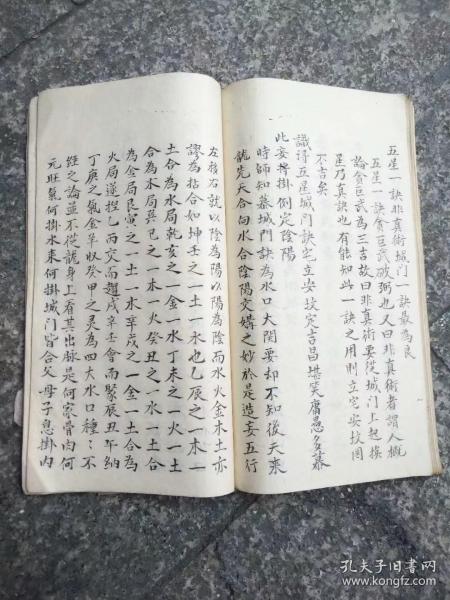 五星一訣非真術城門一訣最為良
五星一訣貪巨武破弼也又曰非真術者謂人概
論貪巨武為三吉故曰非真術要從城門上起挨
星乃真訣也有能知此一訣之用則立宅安坟罔
不吉矣
識得五星城門訣立宅安坟定吉昌堪笑庸愚多慕
此妄將卦例定陰陽
時師知慕城門訣為水口大関要却不知後天來
龍先天合向水合陰陽交媾之妙於是造妄五行
左移右就以陰為陽以陽為陰而水火金木土亦
謬為拈合如坤壬之一土一水也乙辰之一木一
土合為水局乾亥之一金一水丁未之一火一土
合為木局巽巳之一木一火癸丑之一水一土合
為金局艮寅之一土一木辛戌之一金一土合為
火局遂捏乙丙交而趨戌辛壬會而聚辰丑牛納
丁庚之氣金羊收癸甲之灵為四大水口種々不
經之論並不從龍身上看其出脉是何家骨肉何
元旺氣何掛水來何掛城门皆合父母子息掛内
孔夫子旧书网
www.kongfz.com